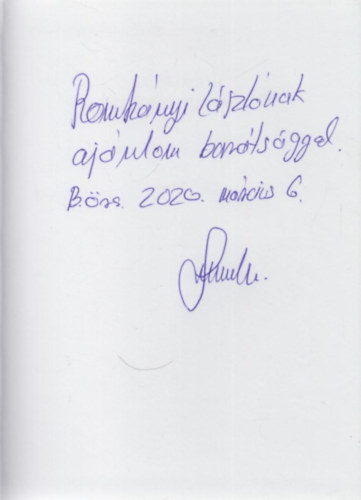 Romhányi Lászlónak
ajánlom barátsággal.
2020. március 6.